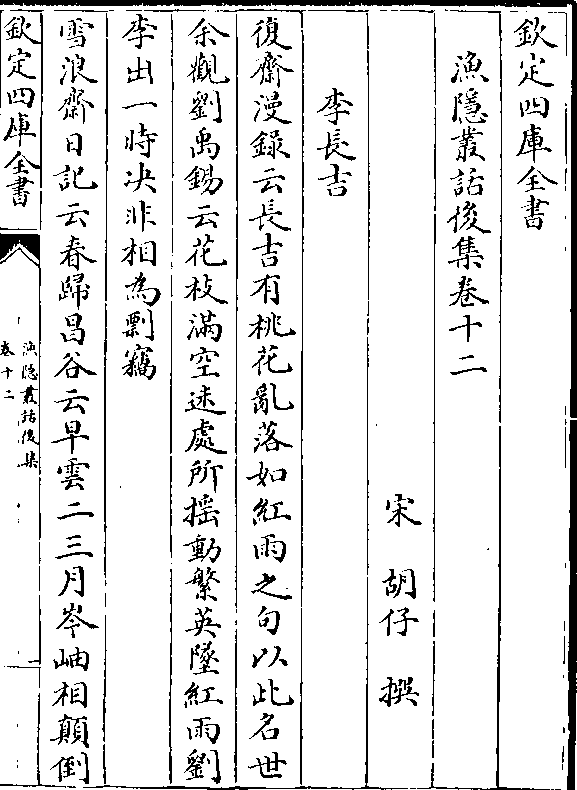 欽定四庫全書
漁隱叢話後集卷十二
宋 胡仔 撰
李長吉
復齋漫錄云長吉有桃花亂落如紅雨之句以此名世
余觀劉禹錫云花枝滿空迷處所搖動繁英墜紅雨劉
李出一時决非相為剽竊
雪浪齋日記云春歸昌谷云早雲二三月岑岫相顛倒
欽定四庫全書
漁隱叢話後集
卷十二
一